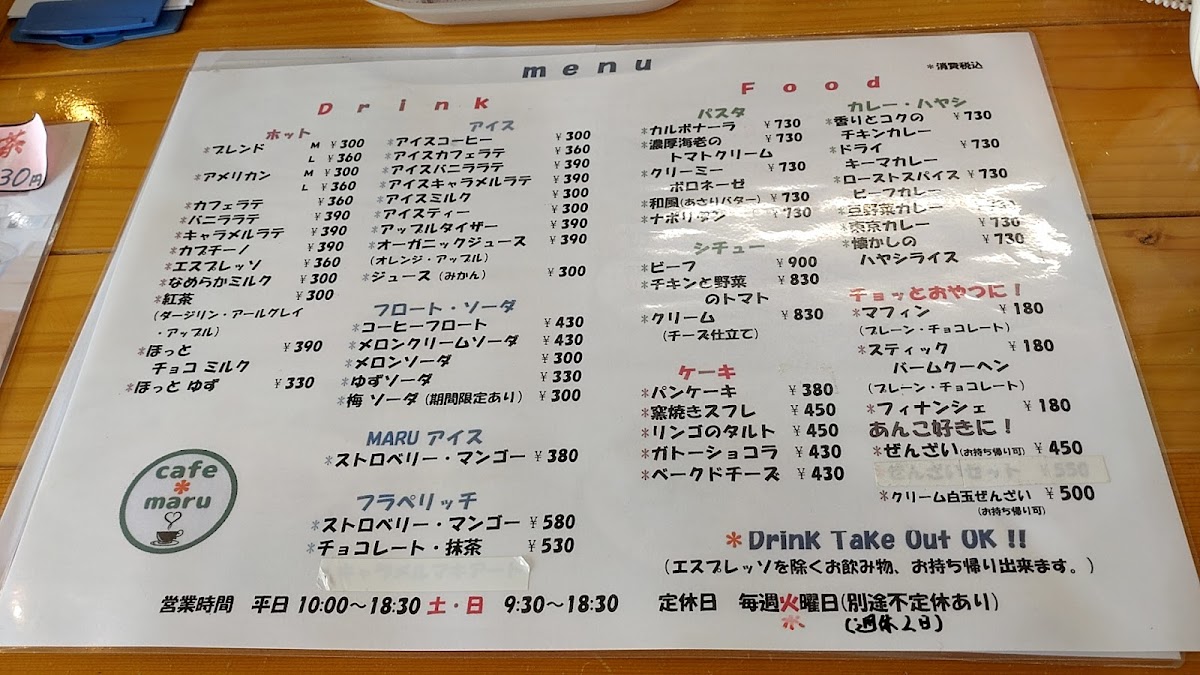 menu
*消費税込
Drink
ホット
*ブレンド M ¥300
L ¥360
*アメリカン M ¥300
L ¥360
*カフェラテ ¥360
*バニララテ ¥390
*キャラメルラテ ¥390
*カプチーノ ¥390
*エスプレッソ ¥360
*なめらかミルク ¥300
*紅茶 ¥300
(ダージリン・アールグレイ
・アップル)
*ほっと ¥390
チョコ ミルク
*ほっと ゆず ¥330
アイス
*アイスコーヒー ¥300
*アイスカフェラテ ¥360
*アイスバニララテ ¥390
*アイスキャラメルラテ ¥390
*アイスミルク ¥300
*アイスティー ¥300
*アップルタイザー ¥390
*オーガニックジュース ¥390
(オレンジ・アップル)
*ジュース (みかん) ¥300
フロート・ソーダ
*コーヒーフロート ¥430
*メロンクリームソーダ ¥430
*メロンソーダ ¥300
*ゆずソーダ ¥330
*梅 ソーダ (期間限定あり) ¥300
MARU アイス
*ストロベリー・マンゴー ¥380
フラペリッチ
*ストロベリー・マンゴー ¥580
*チョコレート・抹茶 ¥530
キャラメルマキアート
cafe
*
maru
Food
パスタ
*カルボナーラ ¥730
*濃厚海老の ¥730
トマトクリーム
*クリーミー ¥730
ボロネーゼ
*和風(あさりバター) ¥730
*ナポリタン ¥730
シチュー
*ビーフ ¥900
*チキンと野菜 ¥830
のトマト
*クリーム ¥830
(チーズ仕立て)
ケーキ
*パンケーキ ¥380
*窯焼きスフレ ¥450
*リンゴのタルト ¥450
*ガトーショコラ ¥430
*ベークドチーズ ¥430
カレー・ハヤシ
*香りとコクの ¥730
チキンカレー
*ドライ ¥730
キーマカレー
*ローストスパイス ¥730
ビーフカレー
*豆野菜カレー
*東京カレー ¥730
*懐かしの ¥730
ハヤシライス
チョッとおやつに!
*マフィン ¥180
(プレーン・チョコレート)
*スティック ¥180
バームクーヘン
(プレーン・チョコレート)
*フィナンシェ ¥180
あんこ好きに!
*ぜんざい(お持ち帰り可) ¥450
ぜんざいセット ¥550
*クリーム白玉ぜんざい ¥500
(お持ち帰り可)
*Drink Take Out OK !!
(エスプレッソを除くお飲み物、お持ち帰り出来ます。)
営業時間 平日 10:00〜18:30 土・日 9:30〜18:30 定休日 毎週火曜日(別途不定休あり)
(週休2日)
30円